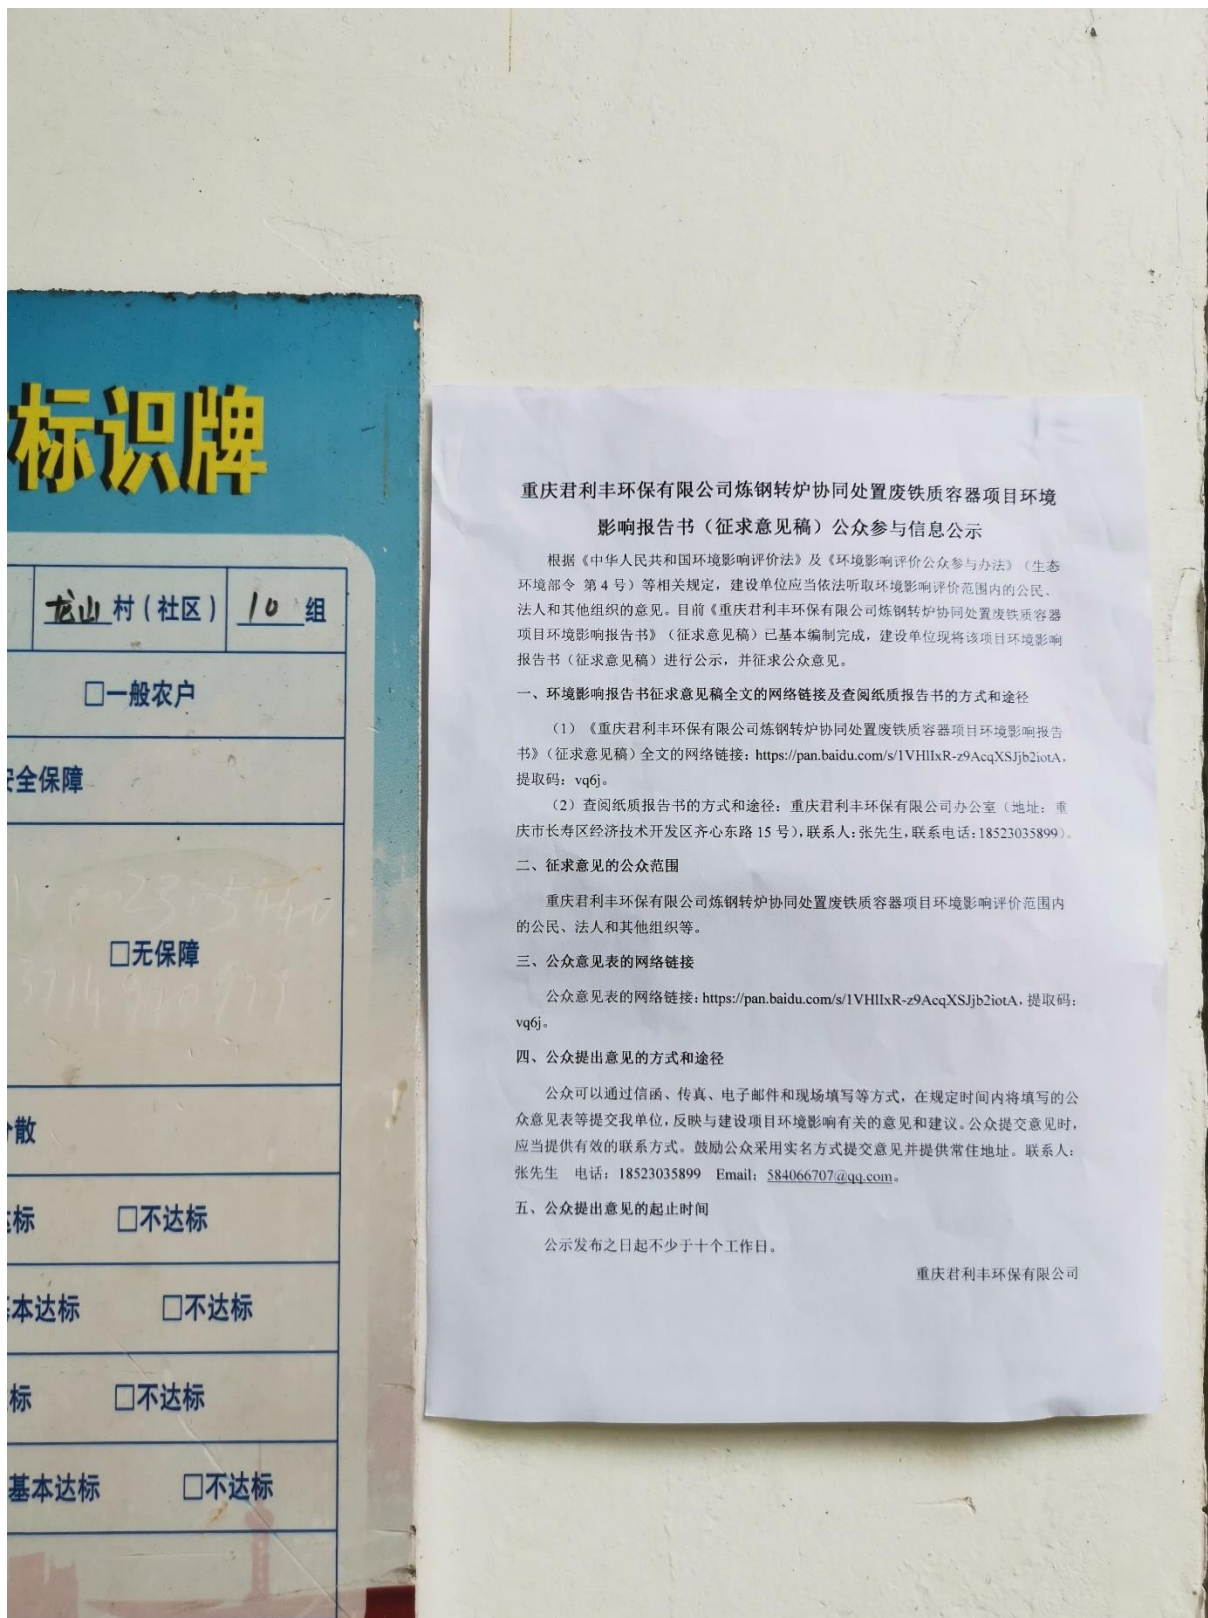 标识牌
龙山村（社区） 10组
□一般农户
安全保障
□无保障
分散
达标 □不达标
基本达标 □不达标
标 □不达标
基本达标 □不达标
重庆君利丰环保有限公司炼钢转炉协同处置废铁质容器项目环境
影响报告书（征求意见稿）公众参与信息公示
根据《中华人民共和国环境影响评价法》及《环境影响评价公众参与办法》（生态
环境部令 第4号）等相关规定，建设单位应当依法听取环境影响评价范围内的公民、
法人和其他组织的意见。目前《重庆君利丰环保有限公司炼钢转炉协同处置废铁质容器
项目环境影响报告书》（征求意见稿）已基本编制完成，建设单位现将该项目环境影响
报告书（征求意见稿）进行公示，并征求公众意见。
一、环境影响报告书征求意见稿全文的网络链接及查阅纸质报告书的方式和途径
（1）《重庆君利丰环保有限公司炼钢转炉协同处置废铁质容器项目环境影响报告
书》（征求意见稿）全文的网络链接：https://pan.baidu.com/s/1VHlIxR-z9AcqXSJjb2iotA，
提取码：vq6j。
（2）查阅纸质报告书的方式和途径：重庆君利丰环保有限公司办公室（地址：重
庆市长寿区经济技术开发区齐心东路15号），联系人：张先生，联系电话：18523035899）。
二、征求意见的公众范围
重庆君利丰环保有限公司炼钢转炉协同处置废铁质容器项目环境影响评价范围内
的公民、法人和其他组织等。
三、公众意见表的网络链接
公众意见表的网络链接：https://pan.baidu.com/s/1VHlIxR-z9AcqXSJjb2iotA，提取码：
vq6j。
四、公众提出意见的方式和途径
公众可以通过信函、传真、电子邮件和现场填写等方式，在规定时间内将填写的公
众意见表等提交我单位，反映与建设项目环境影响有关的意见和建议。公众提交意见时，
应当提供有效的联系方式。鼓励公众采用实名方式提交意见并提供常住地址。联系人：
张先生 电话：18523035899 Email：584066707@qq.com。
五、公众提出意见的起止时间
公示发布之日起不少于十个工作日。
重庆君利丰环保有限公司